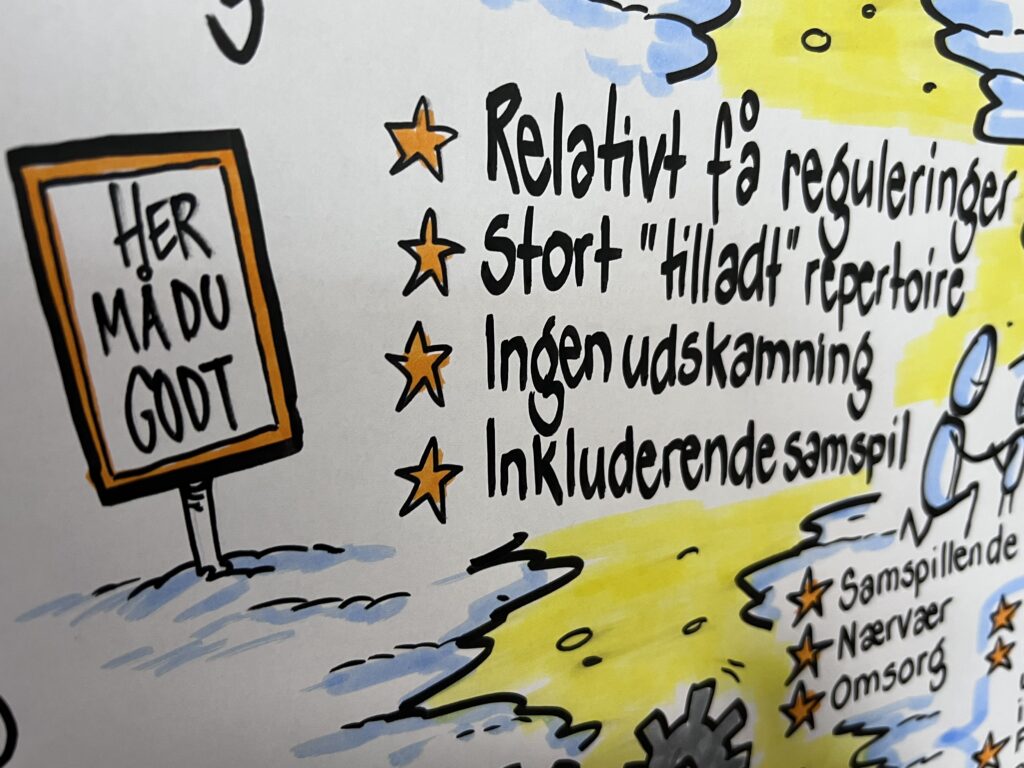 HER
MÅ DU
GODT
Relativt få reguleringer
Stort "tilladt" repertoire
Ingen udskamning
Inkluderende samspil
Samspillende
Nærvær
Omsorg